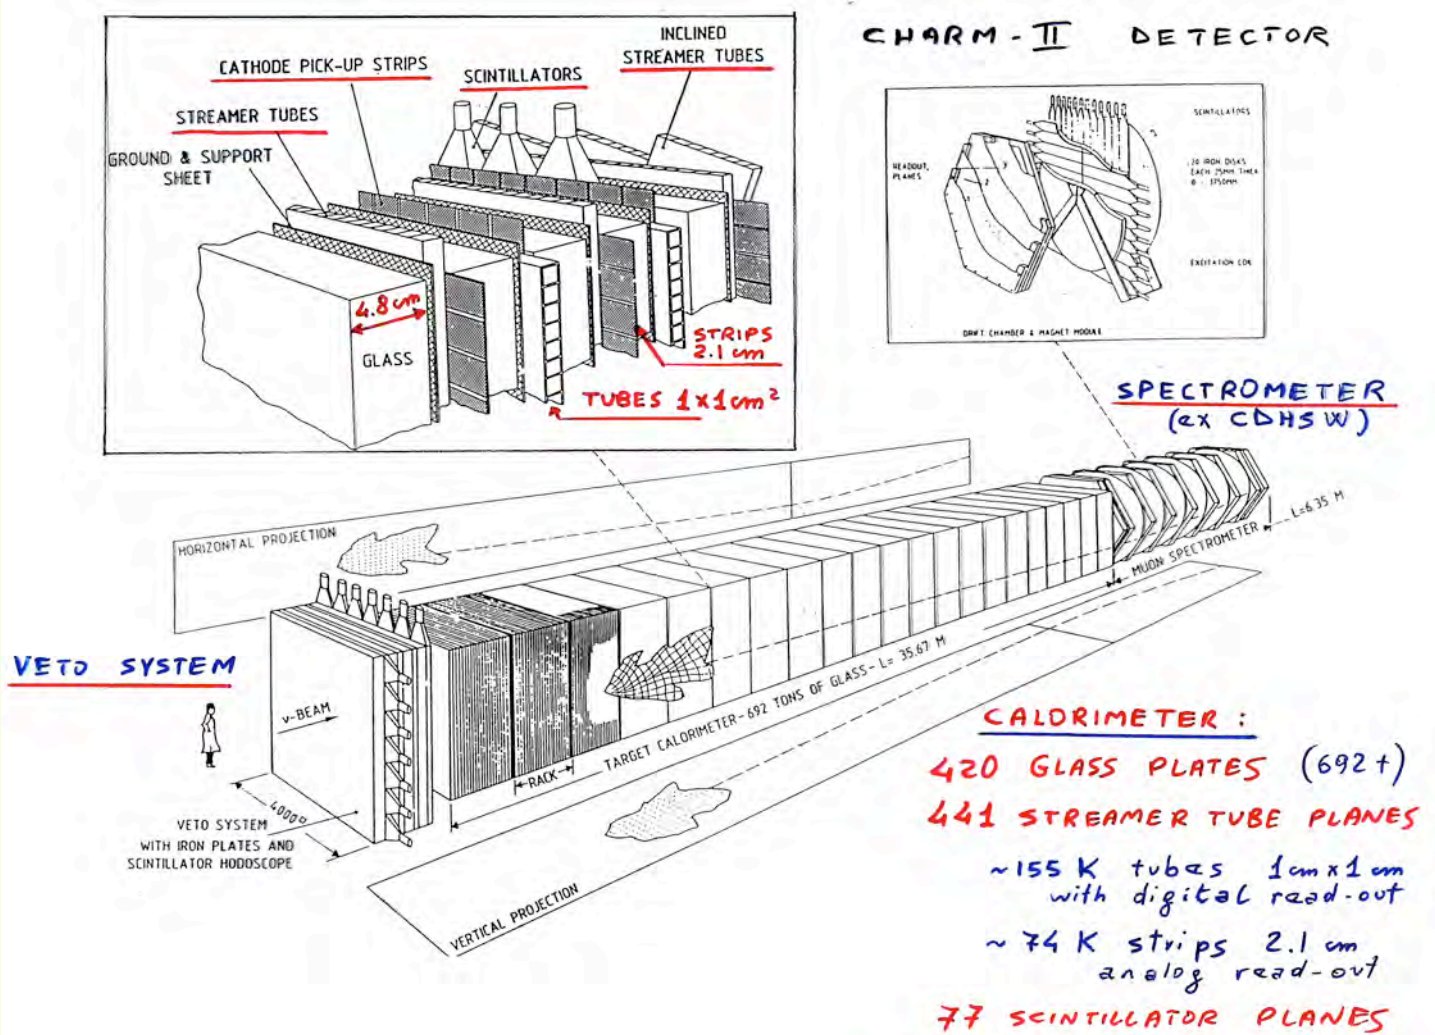 CHARM-II DETECTOR
INCLINED
STREAMER TUBES
CATHODE PICK-UP STRIPS
SCINTILLATORS
STREAMER TUBES
GROUND & SUPPORT
SHEET
4.8 cm
GLASS
STRIPS
2.1 cm
TUBES 1x1cm²
SCINTILLATORS
READOUT
PLANES
20 IRON DISKS
EACH 25MM THICK
DRIFT CHAMBER & MAGNET MODULE
SPECTROMETER
(ex CDHSW)
HORIZONTAL PROJECTION
L=6.35 M
MUON SPECTROMETER
VETO SYSTEM
ν-BEAM
RACK
TARGET CALORIMETER-692 TONS OF GLASS-L= 35.67 M
VETO SYSTEM
WITH IRON PLATES AND
SCINTILLATOR HODOSCOPE
VERTICAL PROJECTION
CALORIMETER :
420 GLASS PLATES (692 t)
441 STREAMER TUBE PLANES
~155 K tubes 1cm x 1 cm
with digital read-out
~ 74 K strips 2.1 cm
analog read-out
77 SCINTILLATOR PLANES